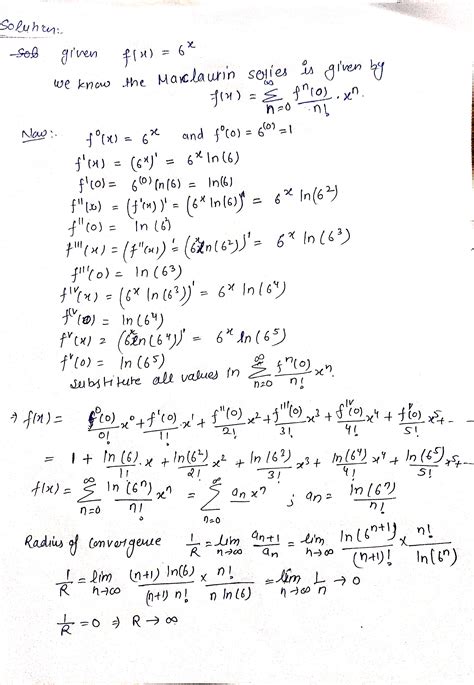 Soluhen:-
Sol given f(x) = 6^x
we know the Marclaurin series is given by
f(x) = ∞ Σ n=0 f^n(0)/n! . x^n.
Now:- f^0(x) = 6^x and f^0(0) = 6^(0) = 1
f'(x) = (6^x)' = 6^x ln(6)
f'(0) = 6^(0) ln(6) = ln(6)
f''(x) = (f'(x))' = (6^x ln(6))' = 6^x ln(6^2)
f''(0) = ln(6^2)
f'''(x) = (f''(x))' = (6^x ln(6^2))' = 6^x ln(6^3)
f'''(0) = ln(6^3)
f^IV(x) = (6^x ln(6^3))' = 6^x ln(6^4)
f^IV(0) = ln(6^4)
f^V(x) = (6^x ln(6^4))' = 6^x ln(6^5)
f^V(0) = ln(6^5)
substitute all values in ∞ Σ n=0 f^n(0)/n! x^n.
⇒ f(x) = f^0(0)/0! x^0 + f'(0)/1! x^1 + f''(0)/2! x^2 + f'''(0)/3! x^3 + f^IV(0)/4! x^4 + f^V(0)/5! x^5 + --
= 1 + ln(6)/1! . x + ln(6^2)/2! x^2 + ln(6^3)/3! x^3 + ln(6^4)/4! x^4 + ln(6^5)/5! x^5 + --
f(x) = ∞ Σ n=0 ln(6^n)/n! x^n = ∞ Σ n=0 an x^n ; an = ln(6^n)/n!
Radius of convergence 1/R = lim n→∞ an+1/an = lim n→∞ ln(6^n+1)/(n+1)! × n!/ln(6^n)
1/R = lim n→∞ (n+1) ln(6)/(n+1) n! × n!/n ln(6) = lim n→∞ 1/n → 0
1/R = 0 ⇒ R → ∞